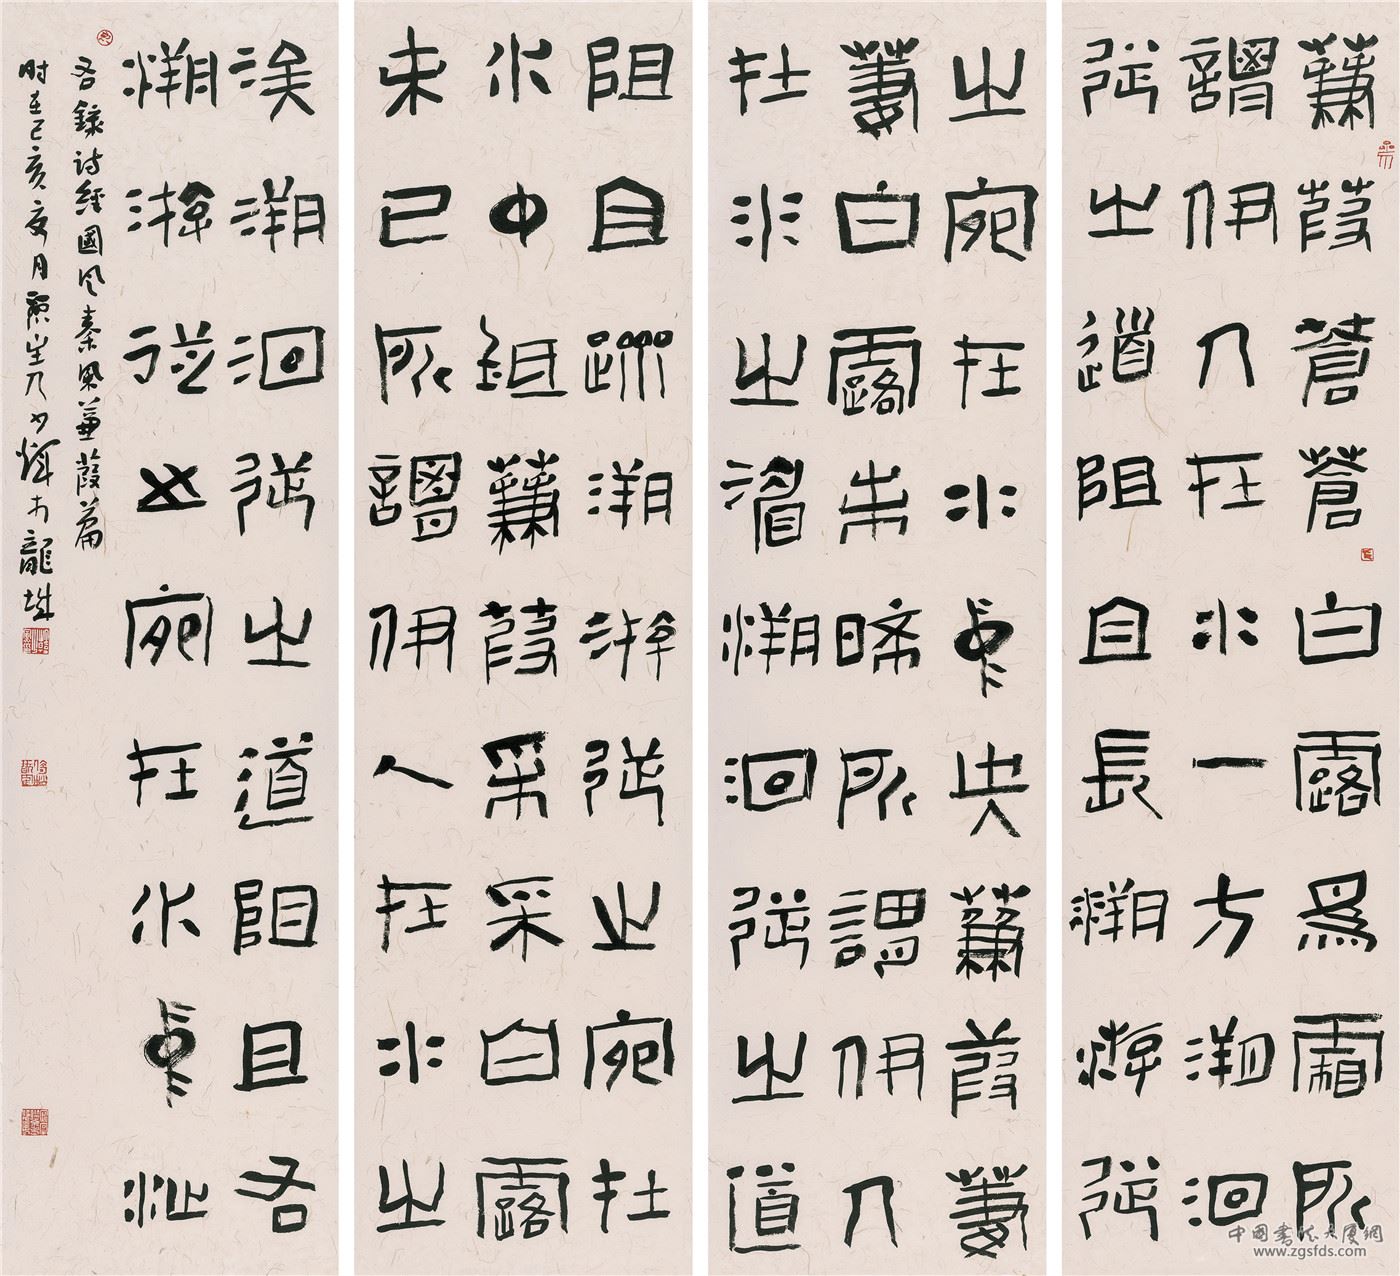 蒹葭蒼蒼白露爲霜所
謂伊人在水一方溯洄
從之道阻且長溯游從
之宛在水中央蒹葭萋
萋白露未晞所謂伊人
在水之湄溯洄從之道
阻且躋溯游從之宛在
水中坻蒹葭采采白露
未已所謂伊人在水之
涘溯洄從之道阻且右
溯游從之宛在水中沚
右錄詩經國风秦風蒹葭篇
时在己亥夏月 於龍城
中國書法大廈網
www.zgsfds.com